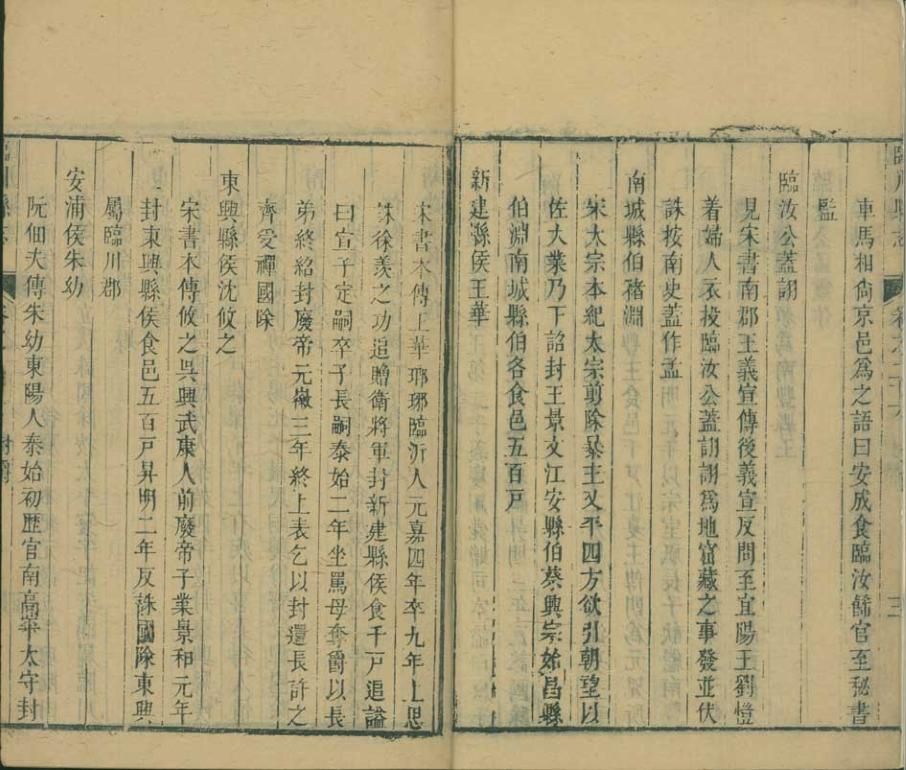 車馬相尙京邑爲之語曰安成食臨汝餙官至秘書
監
臨汝公蓋詡
見宋書南郡王義宣傳後義宣反問至宜陽王劉愷
着婦人衣投臨汝公蓋詡詡爲地窟藏之事發並伏
誅按南史蓋作孟
南城縣伯褚淵
宋太宗本紀太宗剪除暴主又平四方欲引朝望以
佐大業乃下詔封王景文江安縣伯蔡興宗始昌縣
伯淵南城縣伯各食邑五百戸
新建縣侯王華
宋書本傳王華瑯琊臨沂人元嘉四年卒九年上思
誅徐羨之功追贈衛將軍封新建縣侯食千戸追謚
曰宣子定嗣卒子長嗣泰始二年坐罵母奪爵以長
弟終紹封廢帝元徽三年終上表乞以封還長許之
齊受禪國除
東興縣侯沈攸之
宋書本傳攸之吳興武康人前廢帝子業景和元年
封東興縣侯食邑五百戸昇明二年反誅國除東興
屬臨川郡
安浦侯朱幼
阮佃夫傳朱幼東陽人泰始初歷官南高平太守封